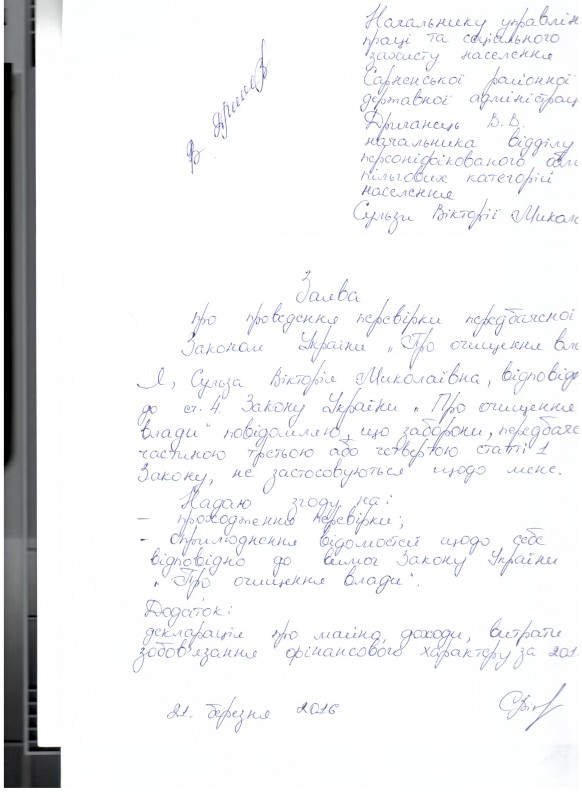 Начальнику управлін
праці та соціального
захисту населення
Сарненської районної
державної адміністрац
Дриганець В.В.
начальника відділу
персоніфікованого облі
пільгових категорій
населення
Сульзи Вікторії Микола
Заява
про проведення перевірки, передбаченої
Законом України „Про очищення вла
Я, Сульза Вікторія Миколаївна, відповід
до ст. 4 Закону України „Про очищення
влади" повідомляю, що заборони, передбаче
частиною третьою або четвертою статті 1
Закону, не застосовуються щодо мене.
Надаю згоду на:
- проходження перевірки;
- оприлюднення відомостей щодо себе
відповідно до вимог Закону України
„Про очищення влади".
Додаток:
декларація про майно, доходи, витрати
зобов'язання фінансового характеру за 201
21. березня 2016